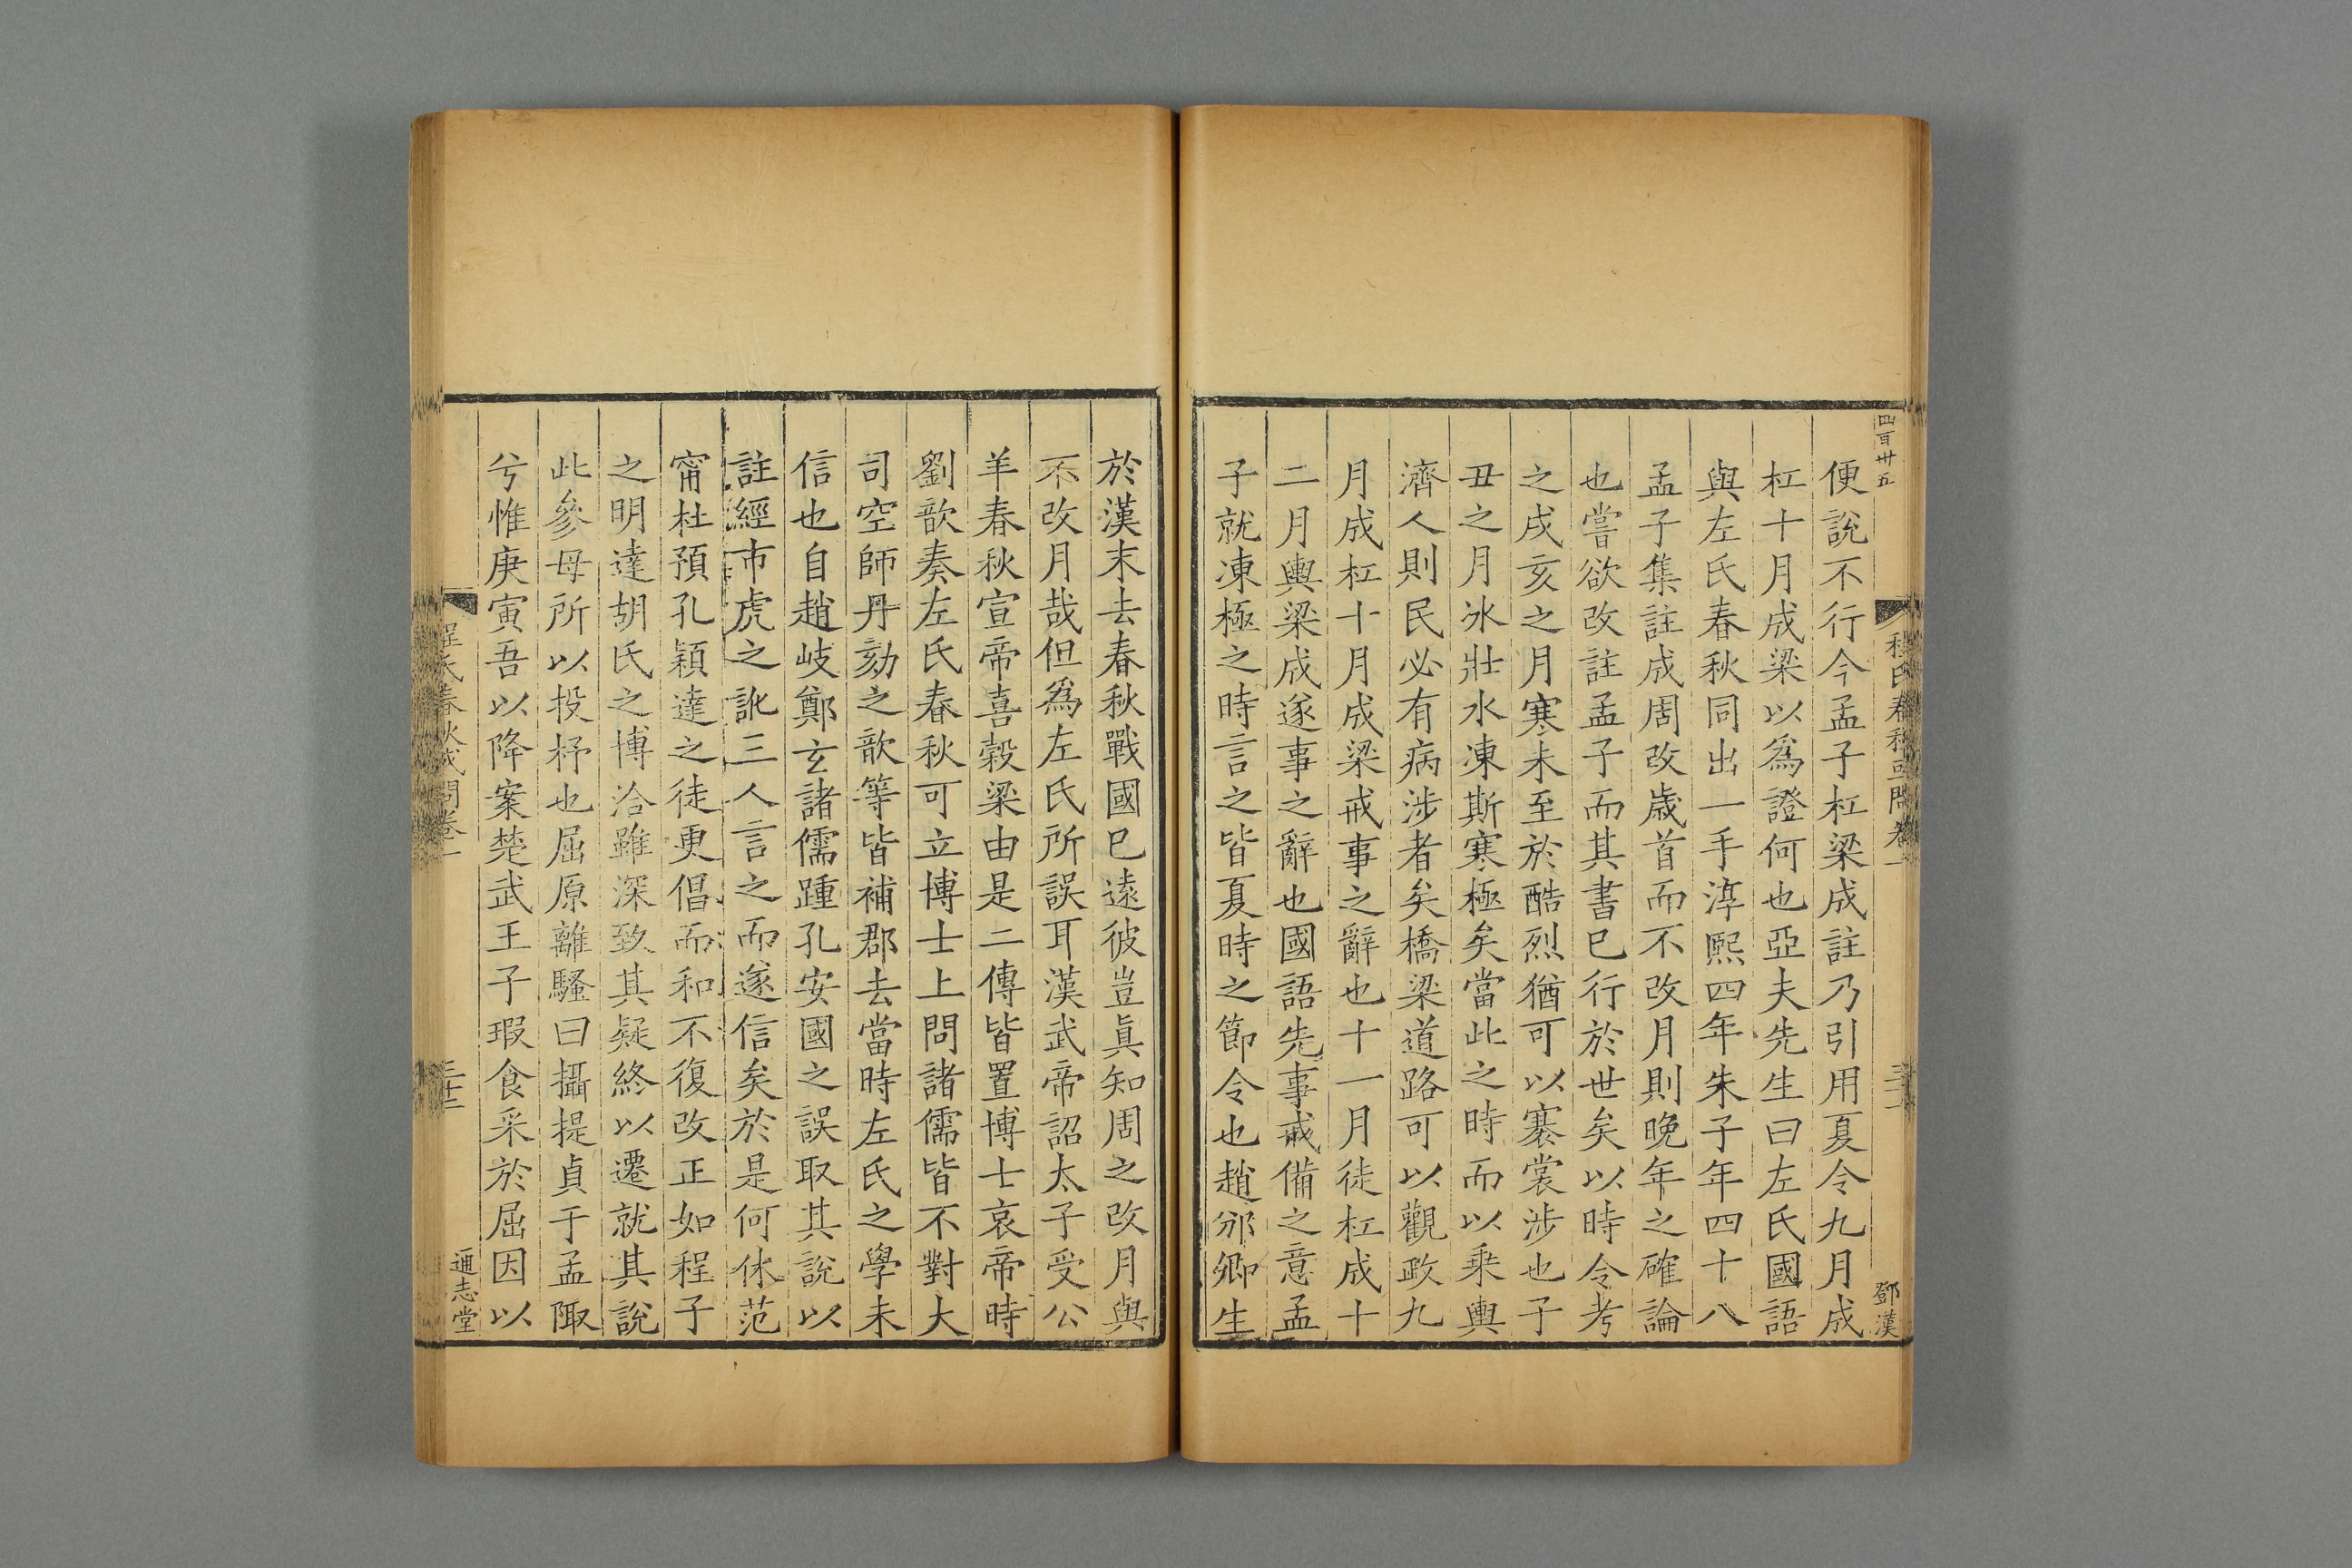 四百卅五
程氏春秋或問卷一
三十一
鄧漢
便說不行今孟子杠梁成註乃引用夏令九月成
杠十月成梁以爲證何也亞夫先生曰左氏國語
與左氏春秋同出一手淳熙四年朱子年四十八
孟子集註成周改歲首而不改月則晚年之確論
也嘗欲改註孟子而其書已行於世矣以時令考
之戌亥之月寒未至於酷烈猶可以褰裳涉也子
丑之月冰壯水凍斯寒極矣當此之時而以乗輿
濟人則民必有病涉者矣橋梁道路可以觀政九
月成杠十月成梁戒事之辭也十一月徒杠成十
二月輿梁成遂事之辭也國語先事戒備之意孟
子就凍極之時言之皆夏時之節令也趙邠卿生
於漢末去春秋戰國已遠彼豈眞知周之改月與
不改月哉但爲左氏所誤耳漢武帝詔太子受公
羊春秋宣帝喜穀梁由是二傳皆置博士哀帝時
劉歆奏左氏春秋可立博士上問諸儒皆不對大
司空師丹劾之歆等皆補郡去當時左氏之學未
信也自趙岐鄭玄諸儒踵孔安國之誤取其說以
註經市虎之訛三人言之而遂信矣於是何休范
甯杜預孔穎達之徒更倡而和不復改正如程子
之明達胡氏之博洽雖深致其疑終以遷就其說
此參母所以投杼也屈原離騷曰攝提貞于孟陬
兮惟庚寅吾以降案楚武王子瑕食采於屈因以
程氏春秋或問卷一
三十二
通志堂